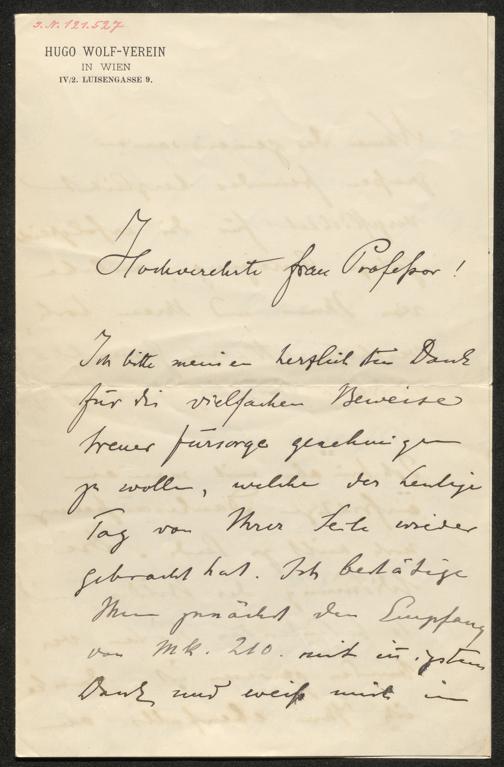 J.N. 121.527
HUGO WOLF-VEREIN
IN WIEN
IV/2. LUISENGASSE 9.
Hochverehrte Frau Professor!
Ich bitte meinen herzlichsten Dank
für die vielfachen Beweise
treuer Fürsorge genehmigen
zu wollen, welche der heutige
Tag von Ihrer Seite wieder
gebracht hat. Ich bestätige
Ihnen zunächst den Empfang
von Mk. 210. mit innigstem
Dank und weiß mich in